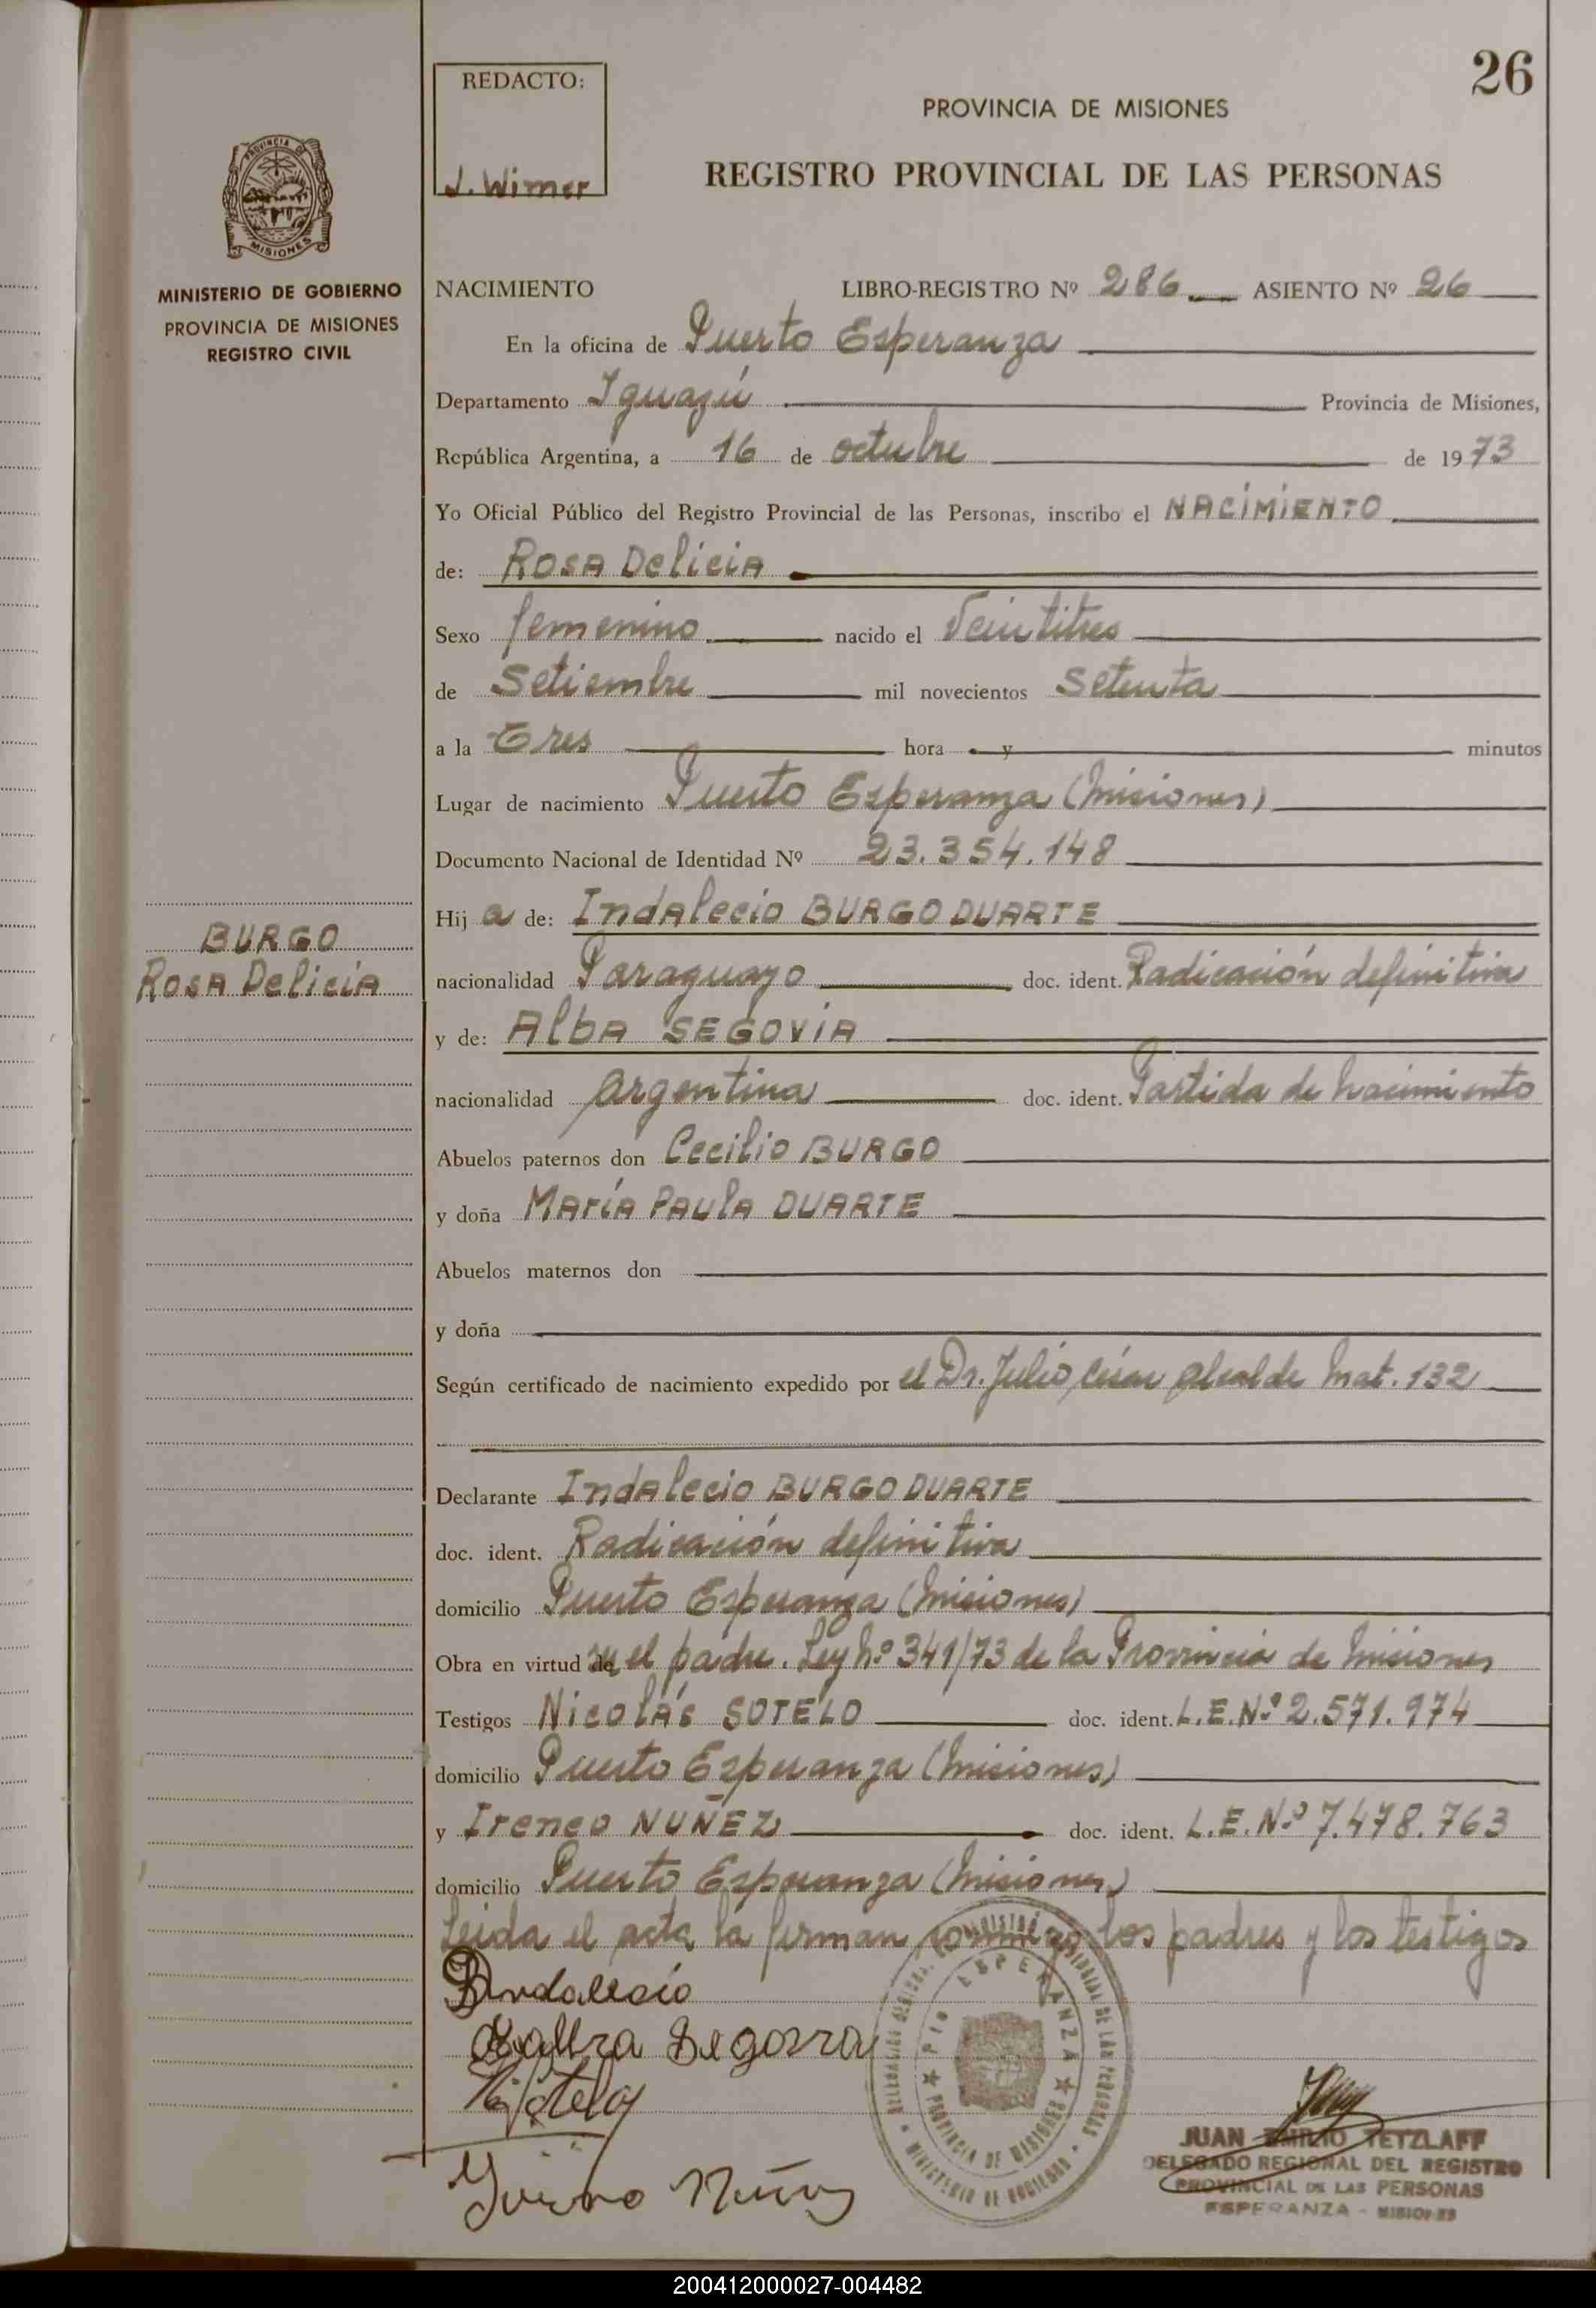 26
REDACTO:
J. Wimer
PROVINCIA DE MISIONES
REGISTRO PROVINCIAL DE LAS PERSONAS
PROVINCIA DE
MISIONES
MINISTERIO DE GOBIERNO
PROVINCIA DE MISIONES
REGISTRO CIVIL
NACIMIENTO LIBRO-REGISTRO Nº 286 ASIENTO Nº 26
En la oficina de Puerto Esperanza
Departamento Iguazú Provincia de Misiones,
República Argentina, a 16 de octubre de 1973
Yo Oficial Público del Registro Provincial de las Personas, inscribo el NACIMIENTO
de: ROSA DELICIA
Sexo femenino nacido el Veintitres
de Setiembre mil novecientos Setenta
a la Tres hora y minutos
Lugar de nacimiento Puerto Esperanza (Misiones)
Documento Nacional de Identidad Nº 23.354.148
Hij a de: Indalecio BURGO DUARTE
BURGO
Rosa Delicia
nacionalidad Paraguayo doc. ident. Radicación definitiva
y de: Alba SEGOVIA
nacionalidad argentina doc. ident. Partida de Nacimiento
Abuelos paternos don Cecilio BURGO
y doña María Paula DUARTE
Abuelos maternos don
y doña
Según certificado de nacimiento expedido por el Dr. Julio César Alcalde Mat. 132
Declarante Indalecio BURGO DUARTE
doc. ident. Radicación definitiva
domicilio Puerto Esperanza (Misiones)
Obra en virtud de el padre. Ley Nº 341/73 de la Provincia de Misiones
Testigos Nicolás SOTELO doc. ident. L.E. Nº 2.571.974
domicilio Puerto Esperanza (Misiones)
y Ireneo NUÑEZ doc. ident. L.E. Nº 7.478.763
domicilio Puerto Esperanza (Misiones)
Leida el acta la firman conmigo los padres y los testigos
Indalecio
Segovia
Pto ESPERANZA
PROVINCIA DE MISIONES
JUAN EMILIO TETZLAFF
DELEGADO REGIONAL DEL REGISTRO
PROVINCIAL DE LAS PERSONAS
ESPERANZA - MISIONES
200412000027-004482